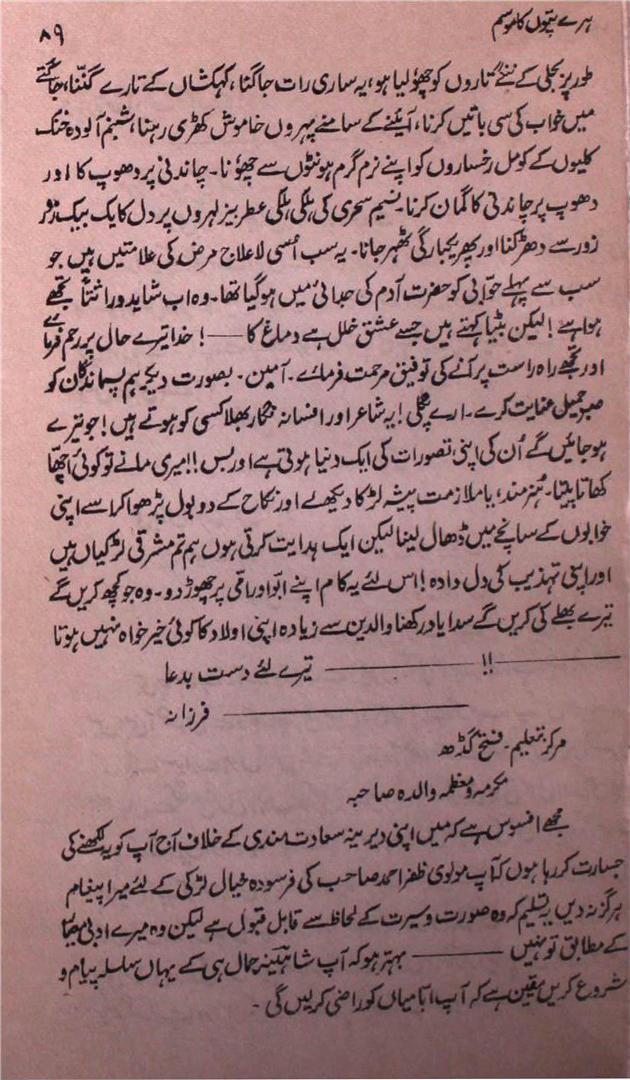 ہرے پتوں کا موسم
۸۹
طور پر بجلی کے ننگے تاروں کو چھو لیا ہو، یہ ساری رات جاگنا، کہکشاں کے تارے گننا، جاگتے
میں خواب کی سی باتیں کرنا، آئینے کے سامنے پہروں خاموش کھڑی رہنا، شبنم آلودہ خنک
کلیوں کے کومل رخساروں کو اپنے نرم گرم ہونٹوں سے چھوٗنا۔ چاندنی پر دھوپ کا اور
دھوپ پر چاندنی کا گمان کرنا۔ نسیم سحری کی ہلکی ہلکی عطر بیز لہروں پر دل کا یک بیک
زور سے دھڑکنا اور پھر یکبارگی ٹھہر جانا۔ یہ سب اُسی لاعلاج مرض کی علامتیں ہیں جو
سب سے پہلے حوّا بی کو حضرت آدم کی جدائی میں ہو گیا تھا۔ وہ اب شاید وراثتاً تجھے
ہوا ہے! لیکن بٹیا کہتے ہیں جسے عشق خلل ہے دماغ کا ——! خدا تیرے حال پر رحم فرمائے
اور تجھے راہ راست پر آنے کی توفیق مرحمت فرمائے۔ آمین۔ بصورت دیگر ہم پسماندگان کو
صبر جمیل عنایت کرے۔ ارے پگلی! یہ شاعر اور افسانہ نگار بھلا کسی کو ہوتے ہیں! جو تیرے
ہو جائیں گے اُن کی اپنی تصورات کی ایک دنیا ہوتی ہے اور بس!! میری مانے تو کوئی اچھا
کھاتا پیتا۔ ہُنر مند، یا ملازمت پیشہ لڑکا دیکھ لے اور نکاح کے دو بول پڑھوا کر اسے اپنی
خوابوں کے سانچے میں ڈھال لینا لیکن ایک ہدایت کرتی ہوں ہم تم مشرقی لڑکیاں ہیں
اور اپنی تہذیب کی دل دادہ! اس لئے یہ کام اپنے ابّو اور امّی پر چھوڑ دو۔ وہ جو کچھ کریں گے
تیرے بھلے کی کریں گے سدا یاد رکھنا والدین سے زیادہ اپنی اولاد کا کوئی خیر خواہ نہیں ہوتا
——!! —— تیرے لئے دست بدعا
—— فرزانہ
مرکز تعلیم۔ فتح گڈھ
مکرمہ و معظمہ والدہ صاحبہ
مجھے افسوس ہے کہ میں اپنی دیرینہ سعادت مندی کے خلاف آج آپ کو یہ لکھنے کی
جسارت کر رہا ہوں کہ آپ مولوی ظفر احمد صاحب کی فرسودہ خیال لڑکی کے لئے میرا پیغام
ہرگز نہ دیں یہ تسلیم کہ وہ صورت و سیرت کے لحاظ سے قابل قبول ہے لیکن وہ میرے ادبی معیار
کے مطابق تو نہیں —— بہتر ہو کہ آپ شاہینہ جمال ہی کے یہاں سلسلہ پیام و
شروع کریں یقین ہے کہ آپ ابّا میاں کو راضی کر لیں گی۔